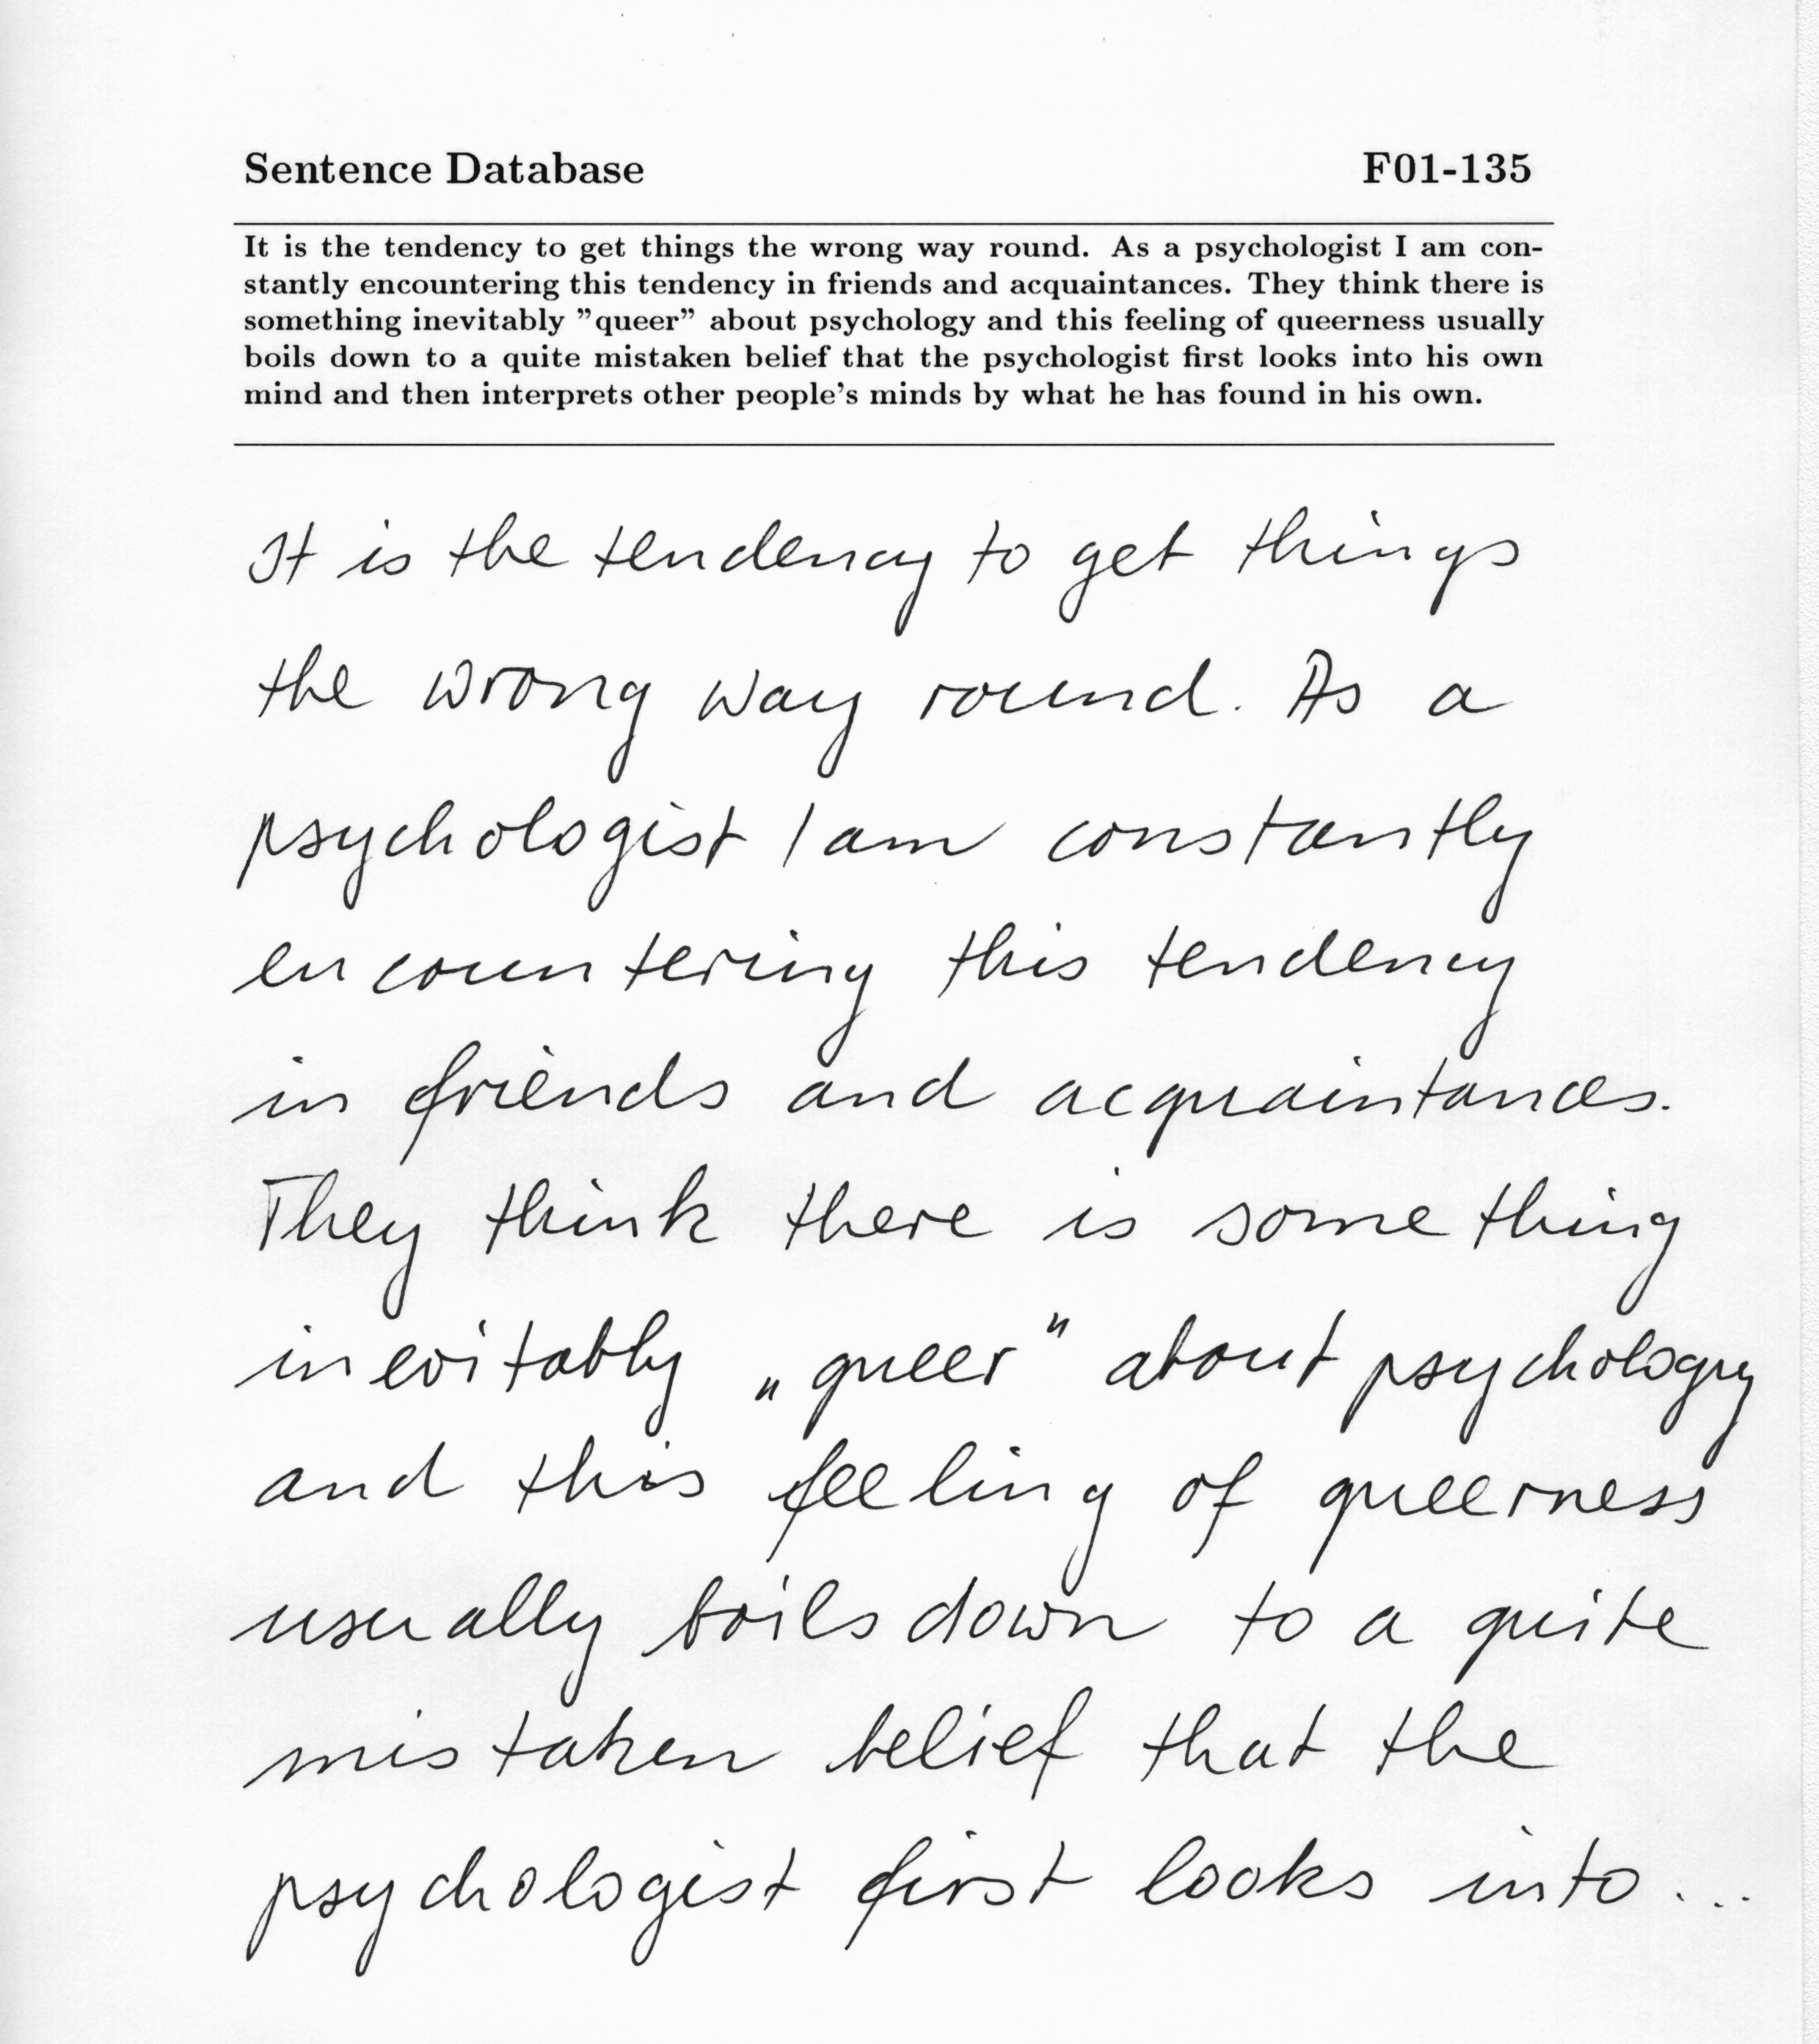 Sentence Database F01-135
It is the tendency to get things the wrong way round. As a psychologist I am con-
stantly encountering this tendency in friends and acquaintances. They think there is
something inevitably ”queer” about psychology and this feeling of queerness usually
boils down to a quite mistaken belief that the psychologist first looks into his own
mind and then interprets other people's minds by what he has found in his own.
It is the tendency to get things
the wrong way round. As a
psychologist I am constantly
encountering this tendency
in friends and acquaintances.
They think there is something
inevitably „queer" about psychology
and this feeling of queerness
usually boils down to a quite
mistaken belief that the
psychologist first looks into...